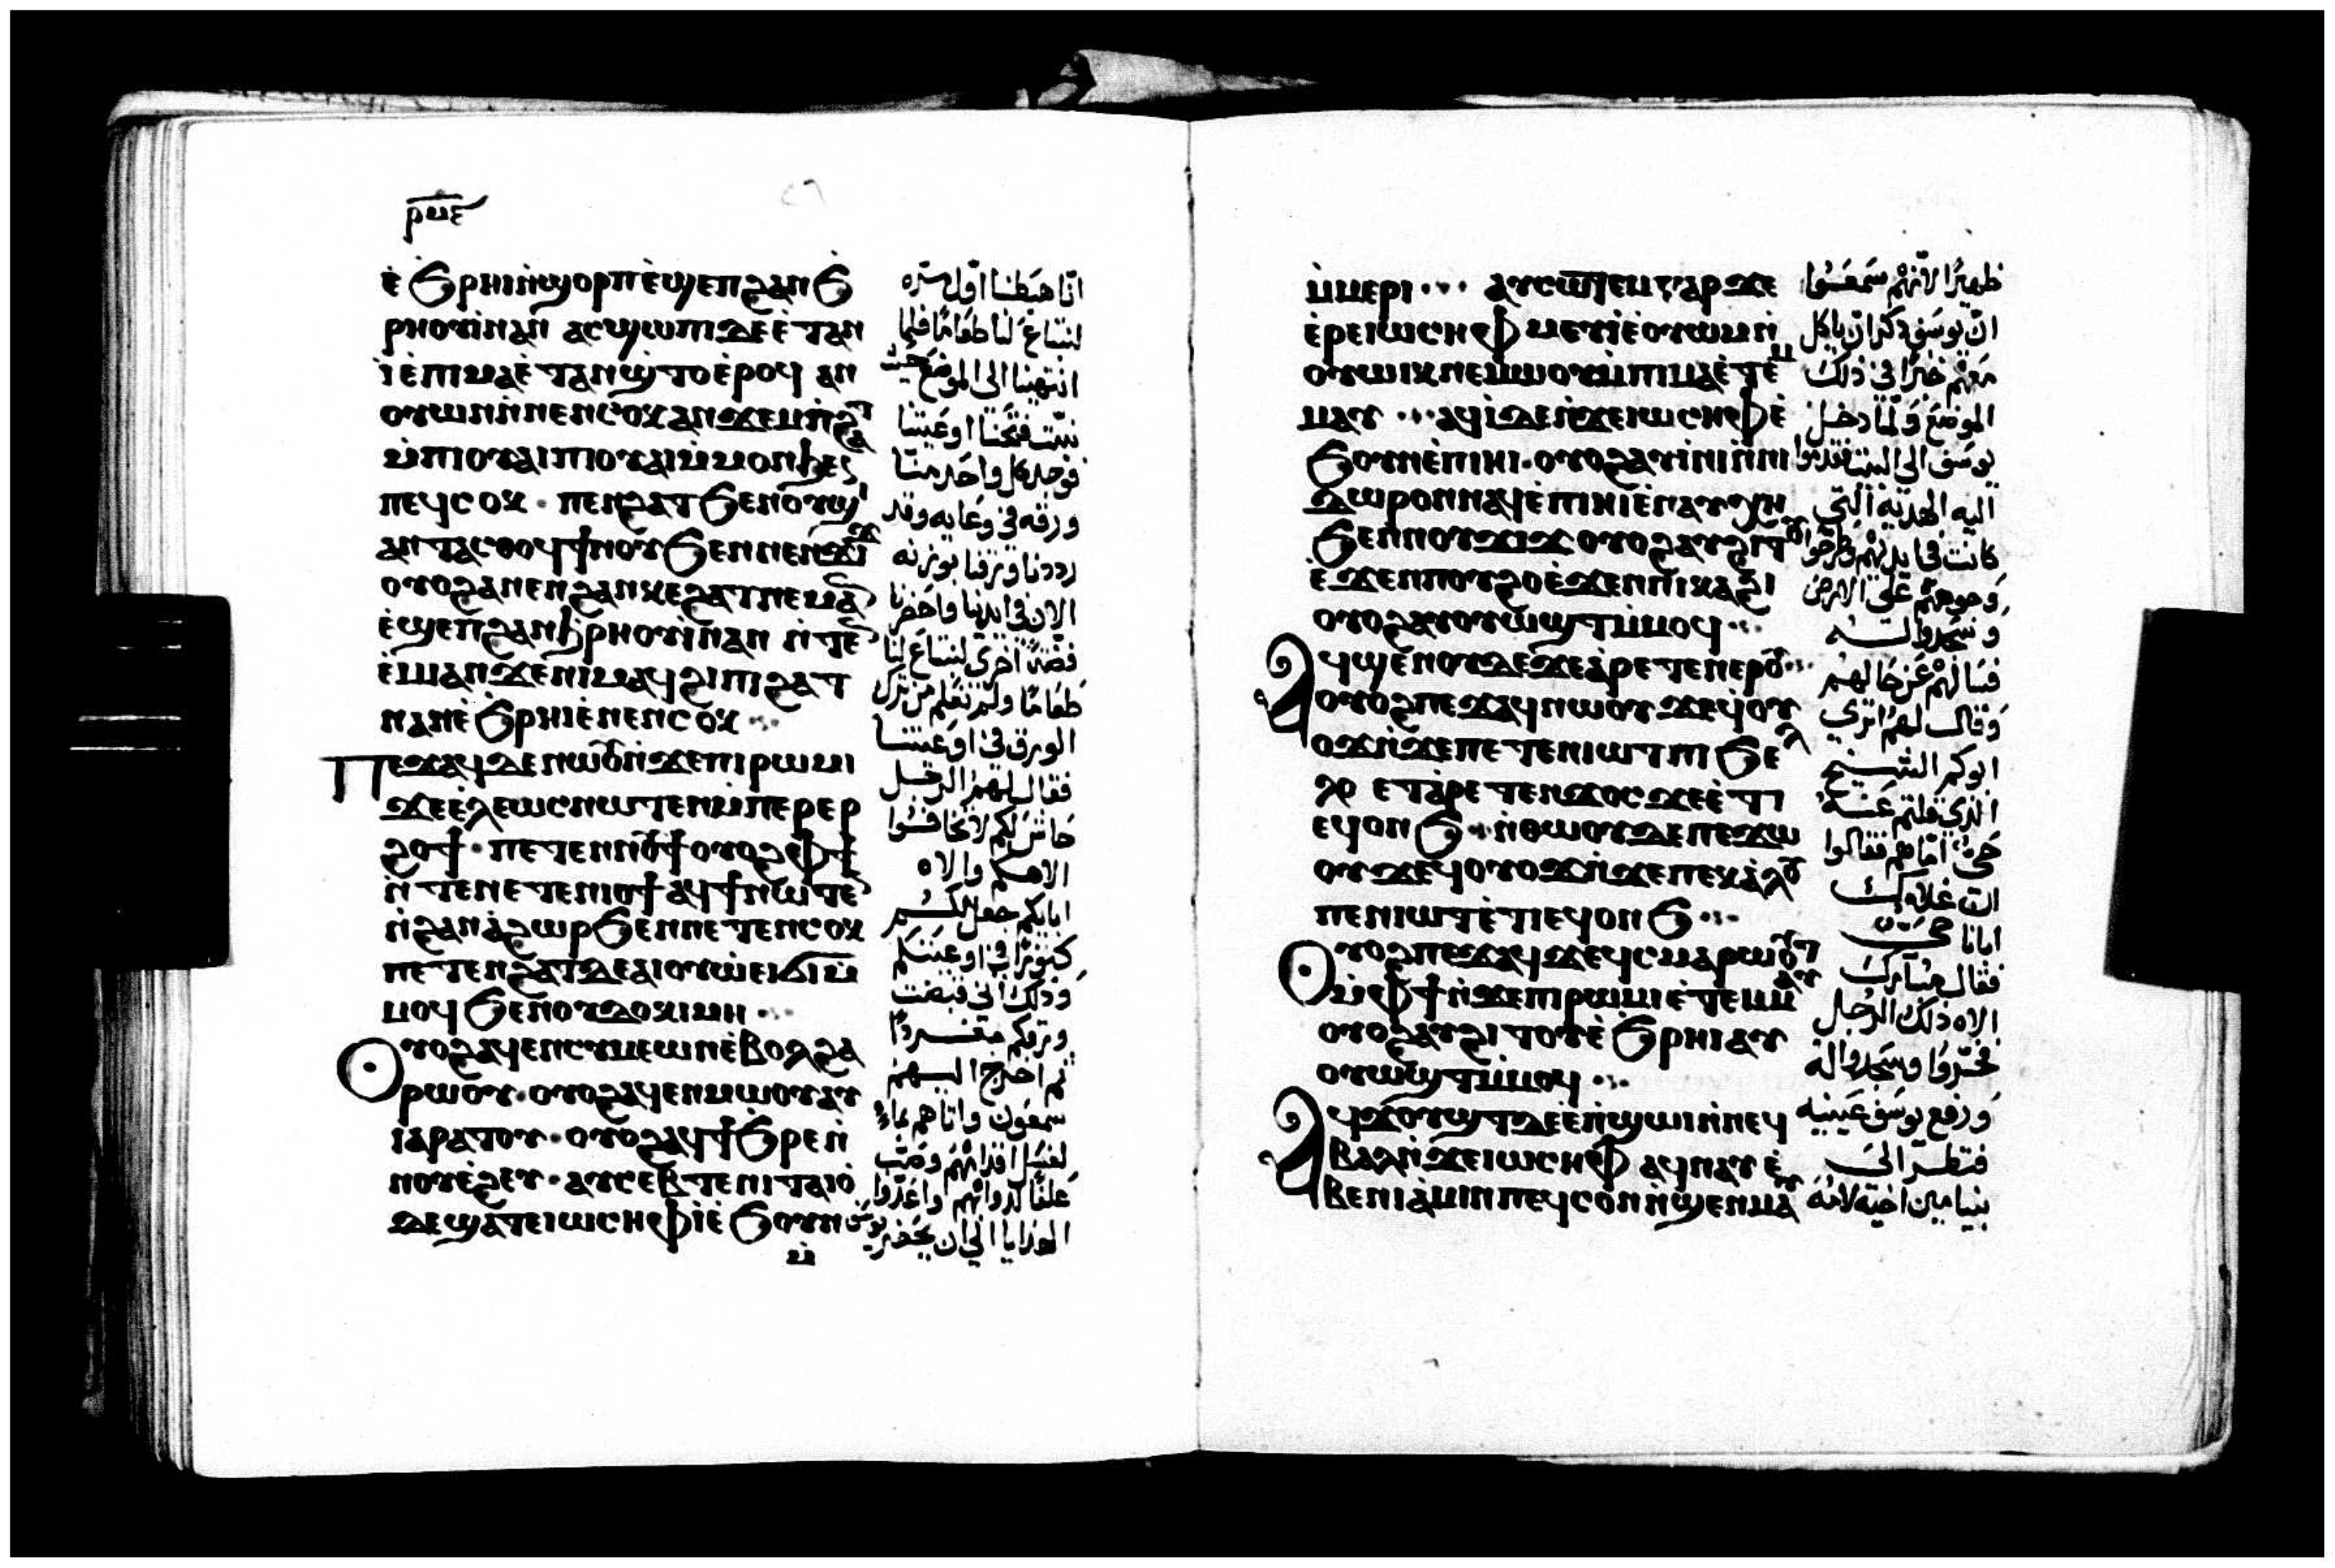 ⲣⲙⲉ
ⲉ̀ϧⲣⲏⲓⲛ̀ϣⲟⲣⲡⲉ̀ϣⲉⲡϩⲁⲛϧ
ⲣⲏⲟⲩⲓ̀ⲛⲁⲛ ⲁⲥϣⲱⲡⲓⲇⲉⲉ̀ⲧⲁⲛ
ⲓ̀ⲉ̀ⲡⲓⲙⲁⲉ̀ⲧⲁⲛϣ̀ⲧⲟⲉ̀ⲣⲟϥ ⲁⲛ
ⲟⲩⲱⲛⲛ̀ⲛⲉⲛⲥⲟⲕ
ⲙ̀ⲡⲓⲟⲩⲁⲓⲡⲓⲟⲩⲁⲓⲙ̀ⲙⲟⲛϧⲉⲛ
ⲡⲉϥⲥⲟⲕ · ⲡⲉⲛϩⲁⲧϧⲉⲛⲟⲩϣⲓ
ⲁⲛⲧⲁⲥⲑⲟϥϯⲛⲟⲩϧⲉⲛⲛⲉⲛϫⲓϫ
ⲟⲩⲟϩⲁⲛⲉⲛϩⲁⲛⲕⲉϩⲁⲧⲛⲉⲙⲁⲛ
ⲉ̀ϣⲉⲡϩⲁⲛϧⲣⲏⲟⲩⲓ̀ⲛⲁⲛ ⲛ̀ⲧⲉⲛ
ⲉ̀ⲙⲓⲁⲛϫⲉⲛⲓⲙⲁϥϩⲓⲡⲓϩⲁⲧ
ⲛⲁⲛⲉ̀ϧⲣⲏⲓⲉ̀ⲛⲉⲛⲥⲟⲕ
ⲡⲉϫⲁϥⲇⲉⲛⲱⲟⲩⲛ̀ϫⲉⲡⲓⲣⲱⲙⲓ
ϫⲉⲉ̀ⲗⲉⲱⲥⲛⲱⲧⲉⲛⲙ̀ⲡⲉⲣⲉⲣ
ϩⲟϯ · ⲡⲉⲧⲉⲛⲛⲟⲩϯⲟⲩⲟϩⲫϯ
ⲛ̀ⲧⲉⲛⲉⲧⲉⲛⲓⲟϯⲁϥϯⲛⲱⲧⲉⲛ
ⲛ̀ϩⲁⲛⲁ̀ϩⲱⲣϧⲉⲛⲛⲉⲧⲉⲛⲥⲟⲕ
ⲡⲉⲧⲉⲛϩⲁⲧⲇⲉⲁⲓⲟⲩⲱ̀ⲉⲓϭⲓⲙ̀
ⲙⲟϥϧⲉⲛⲟⲩⲇⲟⲕⲓⲙⲏ
ⲟⲩⲟϩⲁϥⲉⲛⲥⲩⲙⲉⲱⲛⲉ̀ⲃⲟⲗϩⲁ
ⲣⲱⲟⲩ · ⲟⲩⲟϩⲁϥⲉⲛⲙⲱⲟⲩⲁⲩ
ⲓⲁⲣⲁⲧⲟⲩ · ⲟⲩⲟϩⲁϥϯϧⲣⲉⲛ̀
ⲛⲟⲩⲉ̀ϩⲉⲩ · ⲁⲩⲥⲉⲃⲧⲉⲛⲓⲧⲁⲓⲟ̀
ⲇⲉϣⲁⲧⲉⲓⲱⲥⲏⲫⲓ̀ⲉ̀ϧⲟⲩⲛ
ⲙ̀
انّا هبطنا اوّل مرّه
لنبتاع لنا طعامًا فلما
انتهينا الى الموضع حيث
نبيت فتحنا اوعيتنا
فوجد كل واحد منّا
ورقه فى وعايه وقد
رددنا ورقنا بوزنه
الان فى ايدينا واحضرنا
فضّة اخرى لنبتاع لنا
طعامًا ولم نعلم من ترك
الورق فى اوعيتنا
فقال لهم الرجل
حاش لكم لا تخافوا
الاهكم والاه
ابايكم جعل لكم
كنوزًا فى اوعيتكم
وذلك انى قبضت
ورقكم
ثم اخرج اليهم
سمعون واتاهم بماء
لغسل اقدامهم وصبّ
علفًا لدوابهم واعدّوا
الهدايا الى ان يحضر يوسف
ⲙ̀ⲙⲉⲣⲓ ⲁⲩⲥⲱⲧⲉⲙⲅⲁⲣϫⲉ
ⲉ̀ⲣⲉⲓⲱⲥⲏⲫⲙⲉⲩⲓ̀ⲉ̀ⲟⲩⲱⲙⲛ̀
ⲟⲩⲱⲓⲕⲛⲉⲙⲱⲟⲩⲙ̀ⲡⲓⲙⲁⲉ̀ⲧⲉⲙ
ⲙⲁⲩ ⲁϥⲓ̀ⲇⲉⲛ̀ϫⲉⲓⲱⲥⲏⲫⲉ̀
ϧⲟⲩⲛⲉ̀ⲡⲓⲏⲓ · ⲟⲩⲟϩⲁⲩⲓ̀ⲛⲓⲛ̀ⲛⲓ
ⲇⲱⲣⲟⲛⲛⲁϥⲉ̀ⲡⲓⲏⲓⲉ̀ⲛⲁⲩⲭⲏ
ϧⲉⲛⲛⲟⲩϫⲓϫⲟⲩⲟϩⲁⲩϩⲓⲧⲟⲩ
ⲉ̀ϫⲉⲛⲡⲟⲩϩⲟⲉ̀ϫⲉⲛⲡⲓⲕⲁϩⲓ
ⲟⲩⲟϩⲁⲩⲟⲩⲱϣⲧⲙ̀ⲙⲟϥ
ⲁϥϣⲉⲛⲟⲩⲇⲉϫⲉⲁ̀ⲣⲉⲧⲉⲛⲉⲣⲟⲩ
ⲟⲩⲟϩⲡⲉϫⲁϥⲛⲱⲟⲩ ϫⲉϥⲟⲩ
ⲟϫⲛ̀ϫⲉⲡⲉⲧⲉⲛⲓⲱⲧⲡⲓϧⲉⲗ
ⲗⲟ ⲉⲧⲁ̀ⲣⲉⲧⲉⲛϫⲟⲥϫⲉⲉ̀ⲧⲓ
ⲉϥⲟⲛϧ ⲛ̀ⲑⲱⲟⲩⲇⲉⲡⲉϫⲱ
ⲟⲩϫⲉϥⲟⲩⲟϫⲛ̀ϫⲉⲡⲉⲕⲁ̀ⲗⲟⲩ
ⲡⲉⲛⲓⲱⲧⲉ̀ⲧⲓⲉϥⲟⲛϧ
ⲟⲩⲟϩⲡⲉϫⲁϥϫⲉϥⲥⲙⲁⲣⲱⲟⲩⲧ
ⲙ̀ⲫϯⲛ̀ϫⲉⲡⲓⲣⲱⲙⲓⲉ̀ⲧⲉⲙⲙⲁⲩ
ⲟⲩⲟϩⲁⲩϩⲓⲧⲟⲩⲉ̀ϧⲣⲏⲓⲁⲩ
ⲟⲩⲱϣⲧⲙ̀ⲙⲟϥ
ⲁϥϫⲟⲩϣⲧⲇⲉⲉⲛ̀ϣⲱⲓⲛ̀ⲛⲉϥ
ⲃⲁⲗⲛ̀ϫⲉⲓⲱⲥⲏⲫ ⲁϥⲛⲁⲩⲉ̀
ⲃⲉⲛⲓⲁ̀ⲙⲓⲛⲡⲉϥⲥⲟⲛⲛ̀ϣⲉⲛⲙⲁⲩ
ظهيرًا لانّهم سمعوا
انّ يوسف ذكر ان ياكل
معهم خبزًا فى ذلك
الموضع ولمّا دخل
يوسف الى البيت فقدّموا
اليه الهديّة التى
كانت فى ايديهم وخرّوا
وجوههم على الارض
وسجدوا له
فسالهم عن حالهم
وقال لهم اترى
ابوكم الشيخ
الذى قلتم عنه
حىّ امّا هم فقالوا
انّ غلامك
ابانا حىّ
فقال مبارك
الاه ذلك الرجل
فخرّوا وسجدوا له
ورفع يوسف عينيه
فنظر الى
بنيامين اخيه لامّه